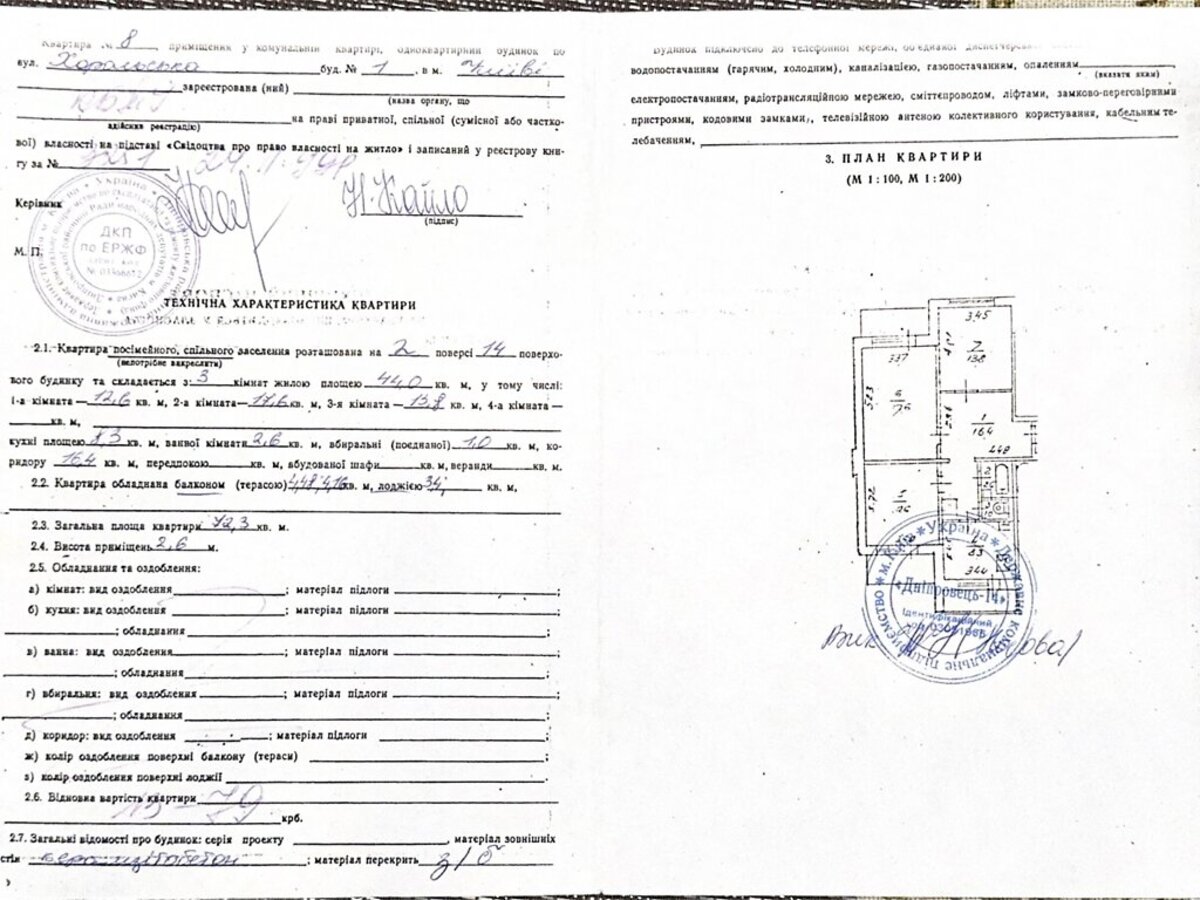 Квартира № 8, приміщення у комунальній квартирі, одноквартирний будинок по
вул. Хорольська буд. № 1, в м. Київі
зареєстрована (ний)
(назва органу, що
здійснив реєстрацію)
на праві приватної, спільної (сумісної або частко-
вої) власності на підставі «Свідоцтва про право власності на житло» і записаний у реєстрову кни-
гу за №
Керівник
Н. Кайло
(підпис)
М. П.
ДКП
по ЕРЖФ
ТЕХНІЧНА ХАРАКТЕРИСТИКА КВАРТИРИ
2.1. Квартира посімейного, спільного заселення розташована на 2 поверсі 14 поверхо-
(непотрібне викреслити)
вого будинку та складається з: 3 кімнат жилою площею 44,0 кв. м, у тому числі:
1-а кімната — 12,6 кв. м, 2-а кімната — 17,6 кв. м, 3-я кімната — 13,8 кв. м, 4-а кімната —
кв. м,
кухні площею 8,3 кв. м, ванної кімнати 2,6 кв. м, вбиральні (поєднаної) 1,0 кв. м, ко-
ридору 16,4 кв. м, передпокою кв. м, вбудованої шафи кв. м, веранди кв. м.
2.2. Квартира обладнана балконом (терасою) 4,48 4,16 кв. м, лоджією 3,4 кв. м,
2.3. Загальна площа квартири 72,3 кв. м.
2.4. Висота приміщень 2,6 м.
2.5. Обладнання та оздоблення:
а) кімнат: вид оздоблення ; матеріал підлоги ;
б) кухня: вид оздоблення ; матеріал підлоги
; обладнання ;
в) ванна: вид оздоблення ; матеріал підлоги ;
; обладнання ;
г) вбиральня: вид оздоблення ; матеріал підлоги ;
; обладнання ;
д) коридор: вид оздоблення ; матеріал підлоги ;
ж) колір оздоблення поверхні балкону (тераси)
з) колір оздоблення поверхні лоджії
2.6. Відновна вартість квартири
крб.
2.7. Загальні відомості про будинок: серія проекту , матеріал зовнішніх
стін керамзітобетон ; матеріал перекрить з/б
Будинок підключено до телефонної мережі, об'єднаної
водопостачанням (гарячим, холодним), каналізацією, газопостачанням, опаленням
(вказати яким)
електропостачанням, радіотрансляційною мережею, сміттєпроводом, ліфтами, замково-переговірними
пристроями, кодовими замками, телевізійною антеною колективного користування, кабельним те-
лебаченням,
3. ПЛАН КВАРТИРИ
(М 1 : 100, М 1 : 200)
3.45
4.01
7
13.8
337
5.23
6
17.6
1
16.4
448
3.72
5
12.6
8.3
344
* м. Київ * Україна * Державне комунальне підприємство
«Дніпровець-14»
Ідентифікаційний
Вик